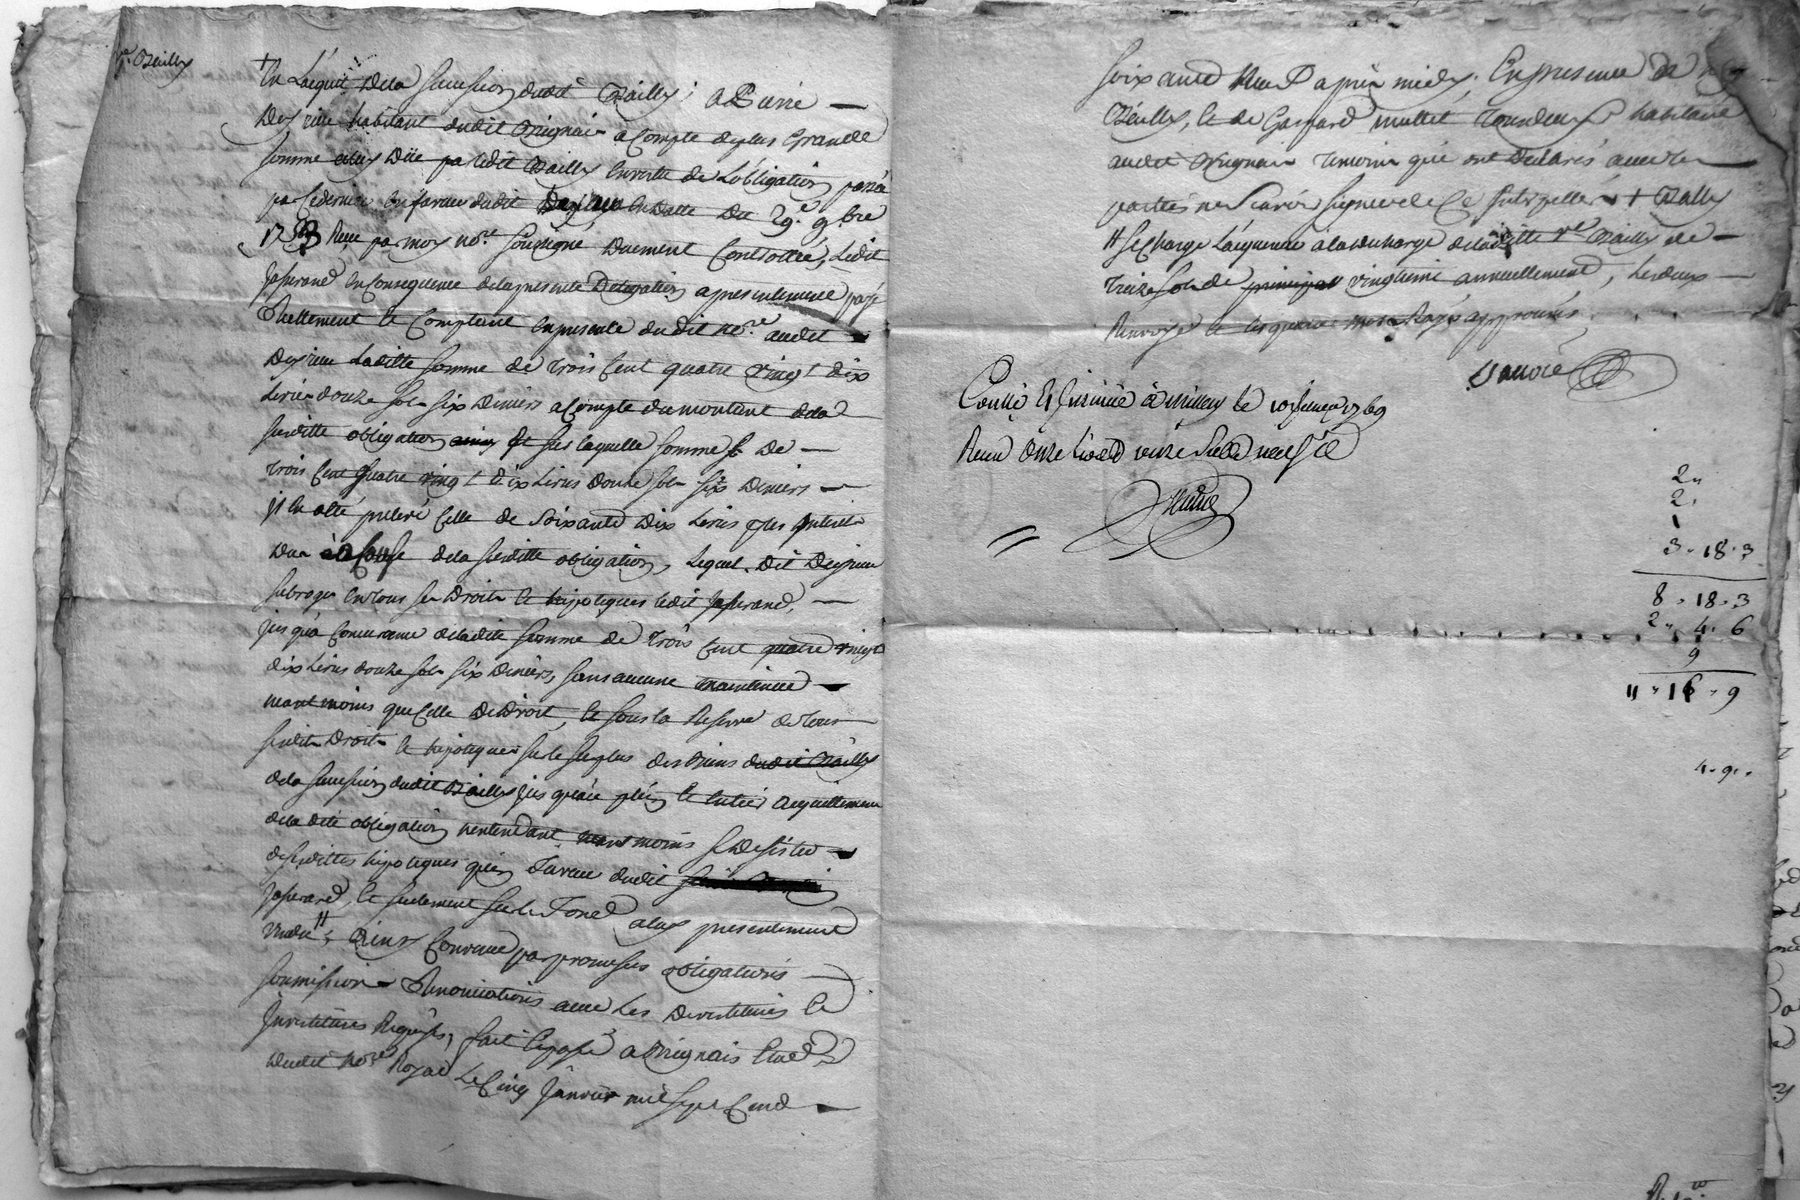 ve. Bailly
+ En Lacquit dela succession dudit Bailly; a Pierre
Deyrieu habitant dudit Brignais a Compte deplus Grande
somme aluy Düe par ledit Bailly En vertu de Lobligation passée
par ce dernier En faveur dudit Deyrieu En datte Du 29.e 9.bre
Reçue par moy no.re soussigné Duement Controllée, Ledit
Jasserand En Consequence delapresente Delegation apresentement payé
Reellement et Comptant En presence dudit no.re audit
Deyrieu Laditte somme de trois Cent quatre vingt dix
Livres douze sols six Deniers acompte dumontant dela
susditte obligation sur laquelle somme De
trois Cent quatre vingt dix Livres Douze sols six Deniers
il En a été prélevé Celle de Soixante Dix Livres pour interets
dela susditte obligation, Lequel dit Deyrieu
subroge En tous ses Droits et hipoteques ledit Jasserand,
jusqua Concurrance deladite somme de trois Cent quatre vingt
dix Livres douze sols six Deniers, sans aucune Maintenue
neantmoins que Celle De Droit, et sous la Reserve de tous
susdits Droits et hipoteques sur le surplus des Biens dudit Bailly
dela succession dudit Bailly jusqu'au plein et entier acquittement
deladite obligation nentendant neantmoins se Desister
desdittes hipoteques qu'en faveur dudit
Jasserand, et seulement sur le Fond aluy presentement
vendu #; Ainsy Convenu par promesses obligations
soumissions Renonciations avec Les Devestitures et
Investitures Requises, fait Et passé a Brignais Etude
Dudit no.re Royal Le Cinq Janvier mil sept Cent
soixante neuf apres midy, En presence de
Bailly, et de Gaspard mullet habitant
audit Brignais temoins qui ont declarés avec les
parties ne scavoir signer de Ce interpellés + Bailly
# se charge L'acquereur à la decharge deladitte ve Bailly de
treize sols de vingtieme annuellement, Les deux
Renvoys et mots Rayés approuvés.
Contlé & insinué à le 10 janvier 1769
Reçu onze livres seize sols neuf d
2 "
2 "
1
3 . 18 . 3
8 . 18 . 3
2 . 4 . 6
9
11 . 16 . 9
4 . 9 .